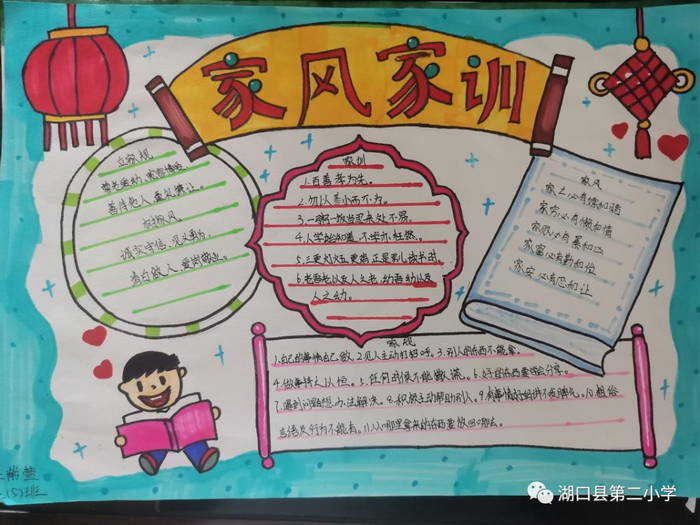 家风家训
立家规
尊老爱幼，家庭和睦。
善待他人，重义情让。
树家风
诚实守信，见义勇为，
清白做人，爱岗敬业。
家训
1.百善孝为先。
2.勿以善小而不为。
3.一粥一饭当思来处不易。
4.人学始知道，不学亦枉然。
5.三更灯火五更鸡正是男儿读书时。
6.老吾老以及人之老，幼吾幼以及
人之幼。
家风
家和必有
家穷必有懒和惰
家败必有暴和凶
家富必有勤和俭
家安必有忍和让
家规
1.自己的事情自己做。2.见人主动打招呼。3.别人的东西不能拿。
4.做事持之以恒。5.任何时候不能撒谎。6.好的东西要学会分享。
7.遇到问题想办法解决。8.积极主动帮助别人。9.有事情好好讲不发脾气。10.粗俗
言语及行为不能有。11.从哪里拿来的东西要放回哪去。
(5)班
湖口县第二小学